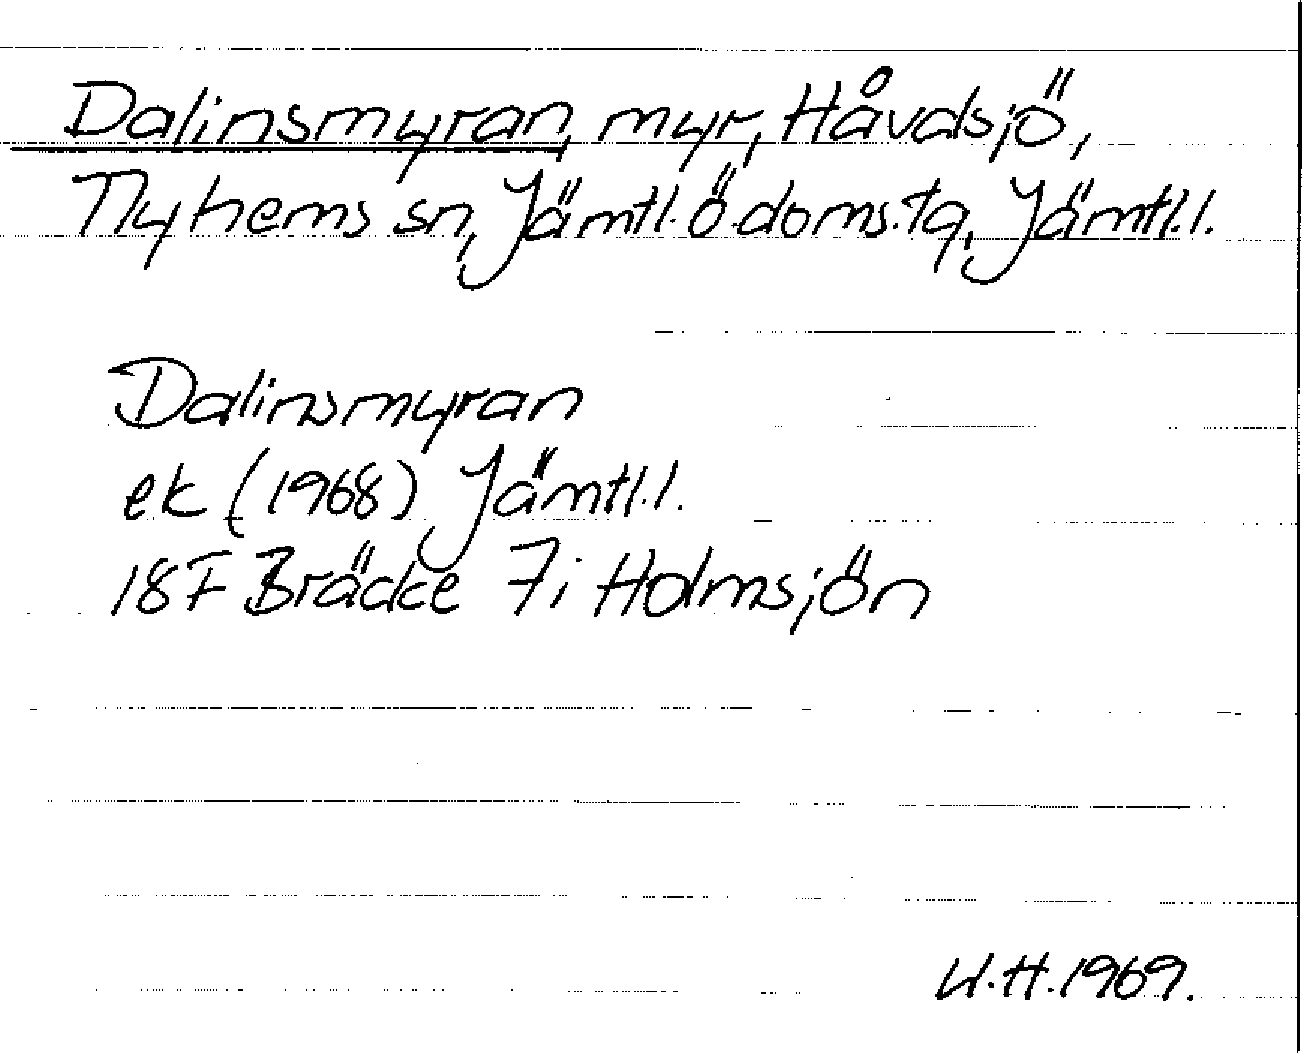 Dalinsmyran, myr, Håvdsjö,
Nyhems sn, Jämtl. ö. doms. tg, Jämtl. l.
Dalinsmyran
ek (1968) Jämtl. l.
18F Bräcke 7i Holmsjön
U.H. 1969.